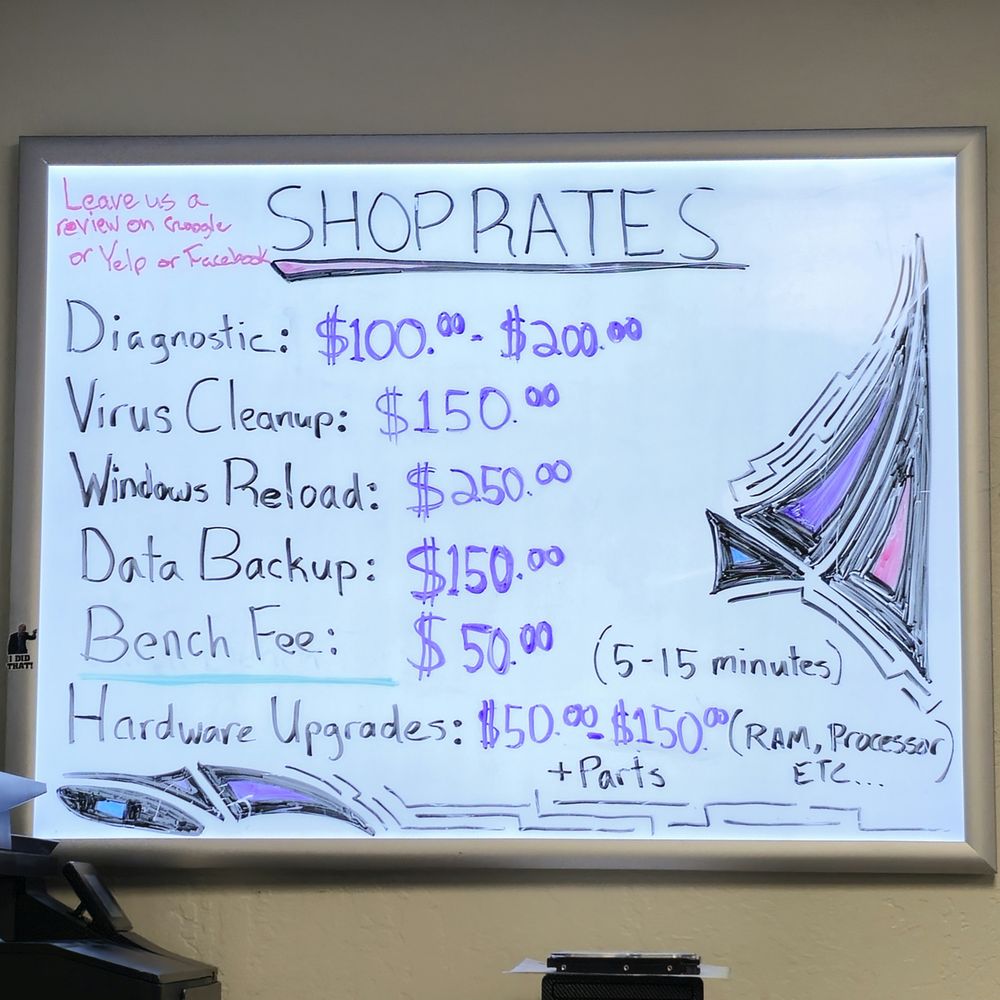 Leave us a
review on Google
or Yelp or Facebook
SHOP RATES
Diagnostic: $100.00 - $200.00
Virus Cleanup: $150.00
Windows Reload: $250.00
Data Backup: $150.00
Bench Fee: $50.00 (5-15 minutes)
Hardware Upgrades: $50.00 - $150.00 (RAM, Processor)
+ Parts ETC...
I DID
THAT!